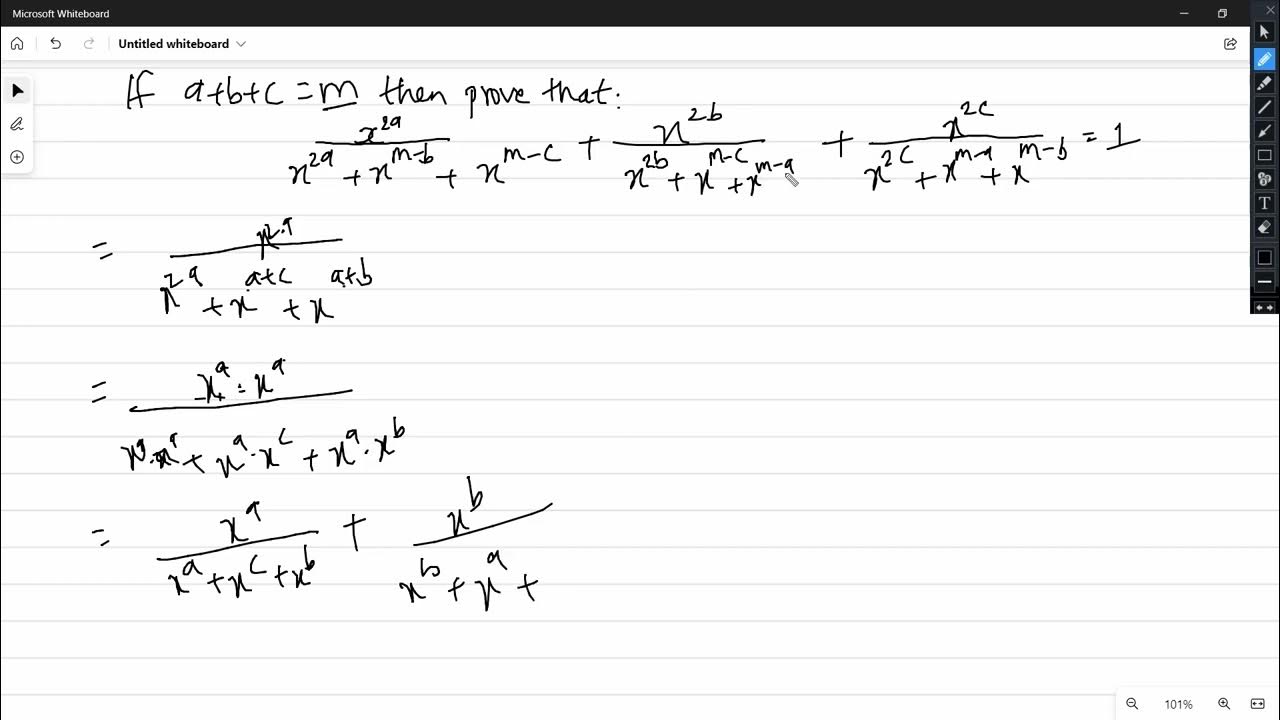 Microsoft Whiteboard
Untitled whiteboard
If a+b+c = m then prove that:
x^{2a}/(x^{2a} + x^{m-b} + x^{m-c}) + x^{2b}/(x^{2b} + x^{m-c} + x^{m-a}) + x^{2c}/(x^{2c} + x^{m-a} + x^{m-b}) = 1
= x^{2·a}/(x^{2a} + x^{a+c} + x^{a+b})
= x^a · x^a/(x^a · x^a + x^a · x^c + x^a · x^b)
= x^a/(x^a + x^c + x^b) + x^b/(x^b + x^a +
T
101%